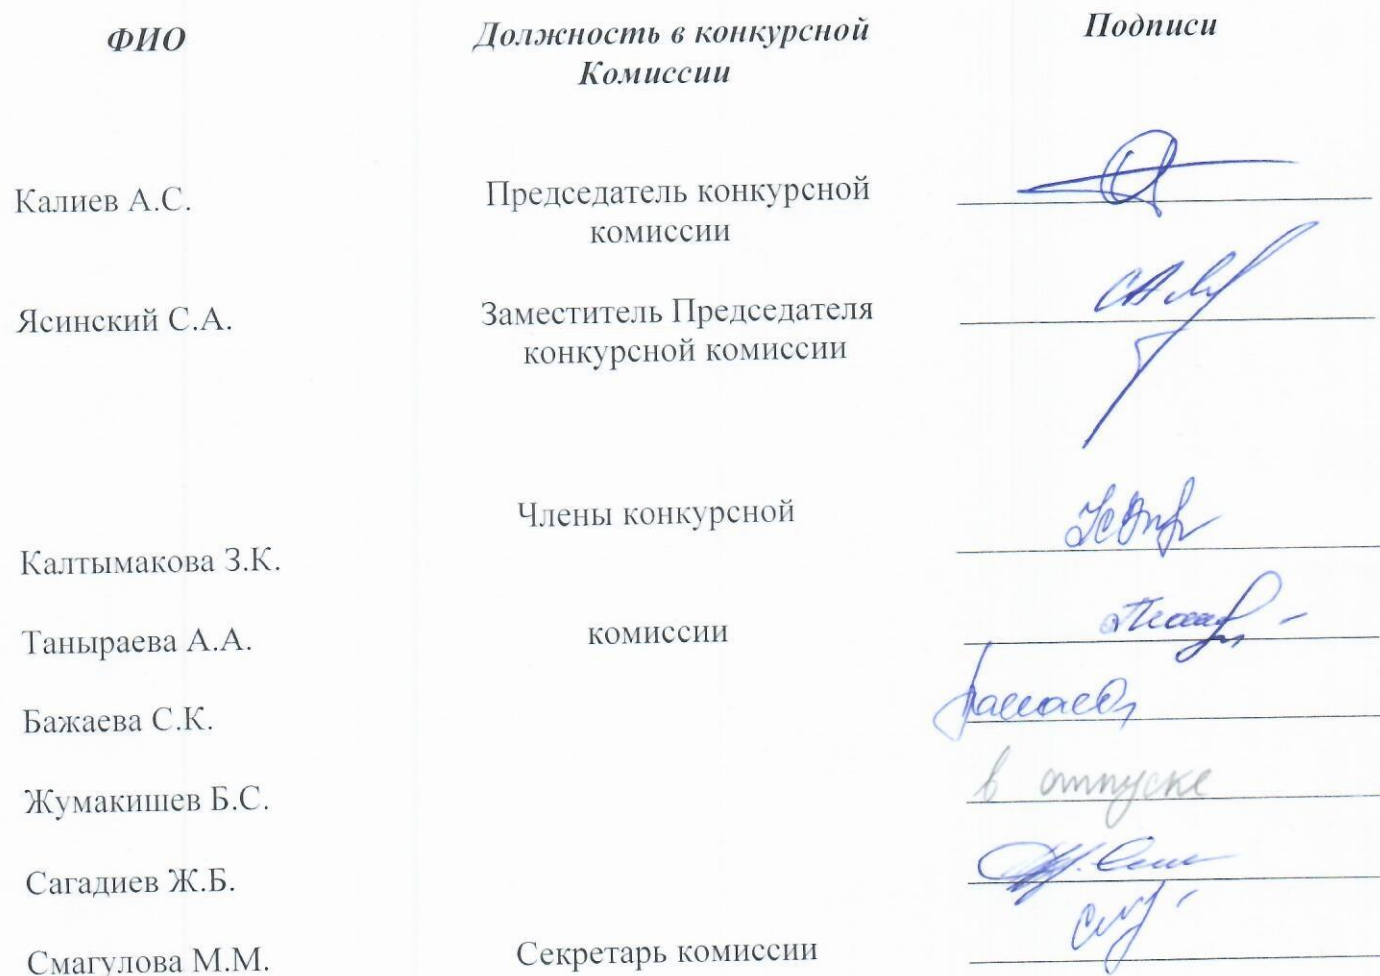 ФИО
Должность в конкурсной
Комиссии
Подписи
Калиев А.С.
Председатель конкурсной
комиссии
Ясинский С.А.
Заместитель Председателя
конкурсной комиссии
Члены конкурсной
Калтымакова З.К.
Таныраева А.А.
комиссии
Бажаева С.К.
Жумакишев Б.С.
в отпуске
Сагадиев Ж.Б.
Смагулова М.М.
Секретарь комиссии